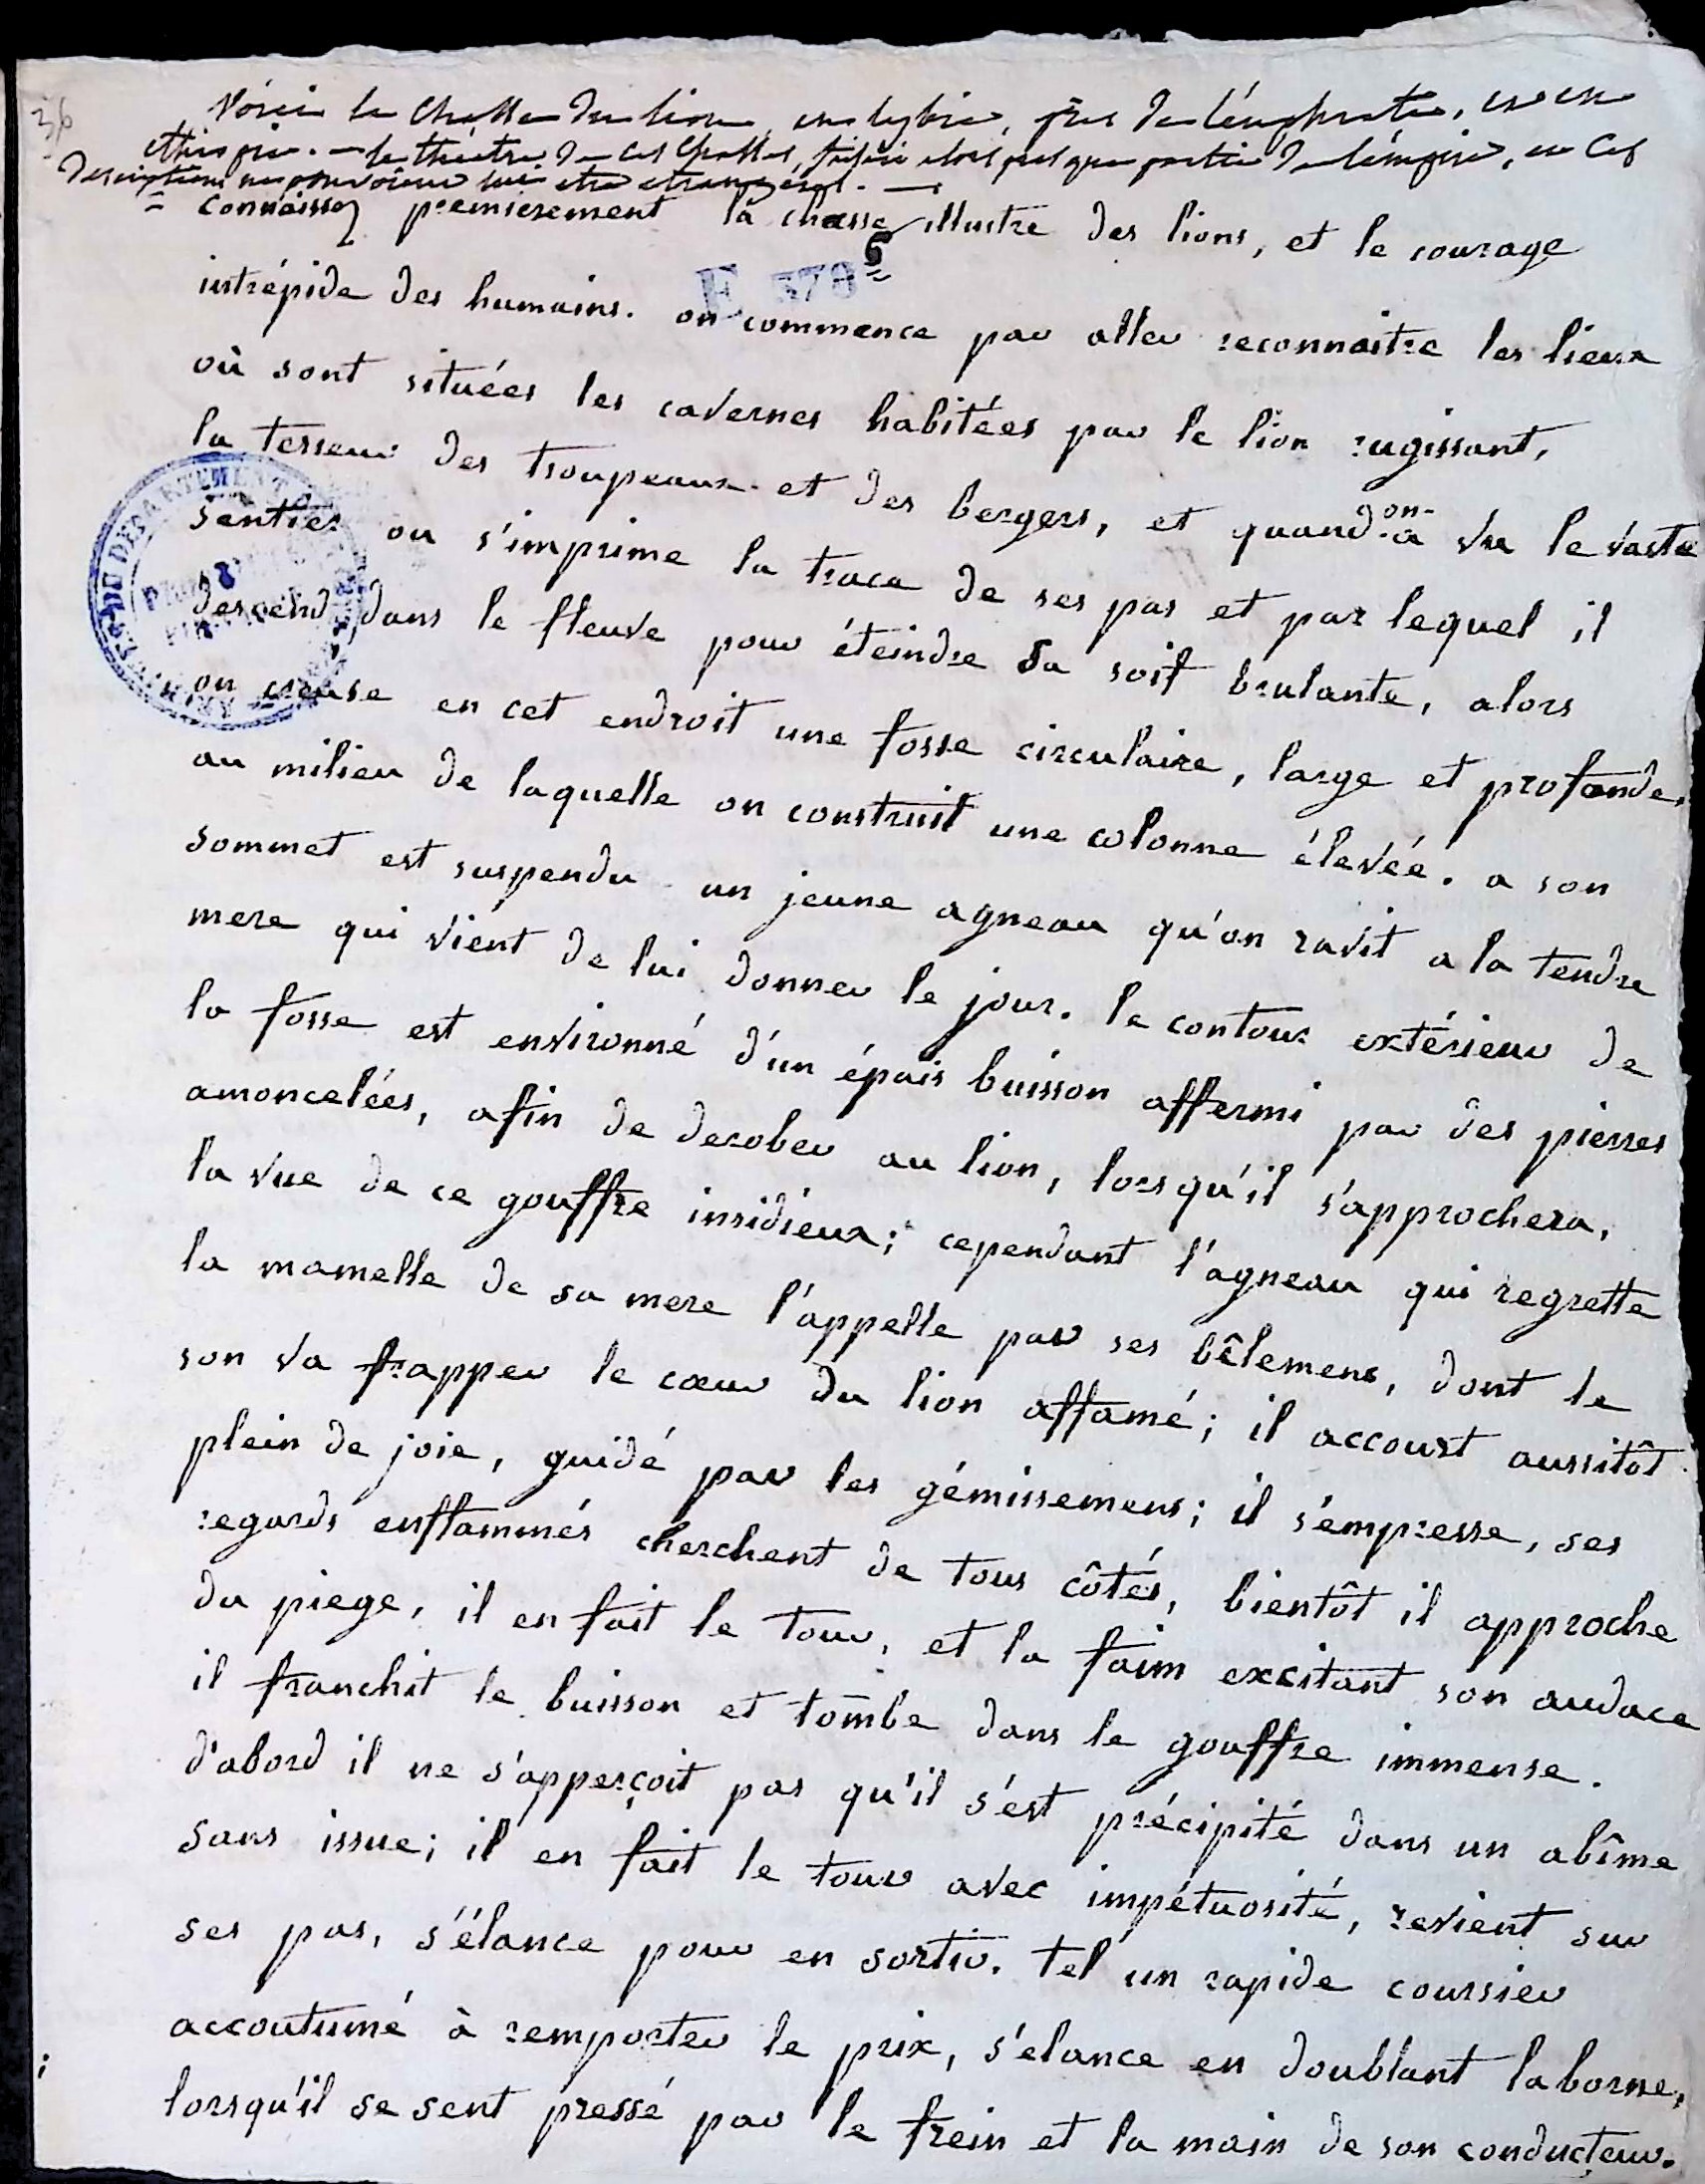 36
Voici la chasse du lion en lybie, près de l'euphrate, et en
ethiopie. — le théâtre de ces chasses, faisoit alors presque partie de l'empire, et ces
descriptions ne pouvoient lui etre etrangéres. —
= connaissez premierement la chasse illustre des lions, et le courage
F 378 6
intrépide des humains. on commence par aller reconnaitre les lieux
où sont situées les cavernes habitées par le lion rugissant,
la terreur des troupeaux et des bergers, et quand on a vu le vaste
sentier ou s'imprime la trace de ses pas et par lequel il
descend dans le fleuve pour éteindre sa soif brulante, alors
on creuse en cet endroit une fosse circulaire, large et profonde,
au milieu de laquelle on construit une colonne élevée. a son
sommet est suspendu un jeune agneau qu'on ravit a la tendre
mere qui vient de lui donner le jour. le contour extérieur de
la fosse est environné d'un épais buisson affermi par des pierres
amoncelées, afin de derober au lion, lorsqu'il s'approchera,
la vue de ce gouffre insidieux; cependant l'agneau qui regrette
la mamelle de sa mere l'appelle par ses bêlemens, dont le
son va frapper le cœur du lion affamé; il accourt aussitôt
plein de joie, guidé par les gémissemens; il s'empresse, ses
regards enflammés cherchent de tous côtés, bientôt il approche
du piege, il en fait le tour, et la faim excitant son audace
il franchit le buisson et tombe dans le gouffre immense.
d'abord il ne s'apperçoit pas qu'il s'est précipité dans un abîme
sans issue; il en fait le tour avec impétuosité, revient sur
ses pas, s'élance pour en sortir. tel un rapide coursier
accoutumé à remporter le prix, s'elance en doublant la borne,
lorsqu'il se sent pressé par le frein et la main de son conducteur.